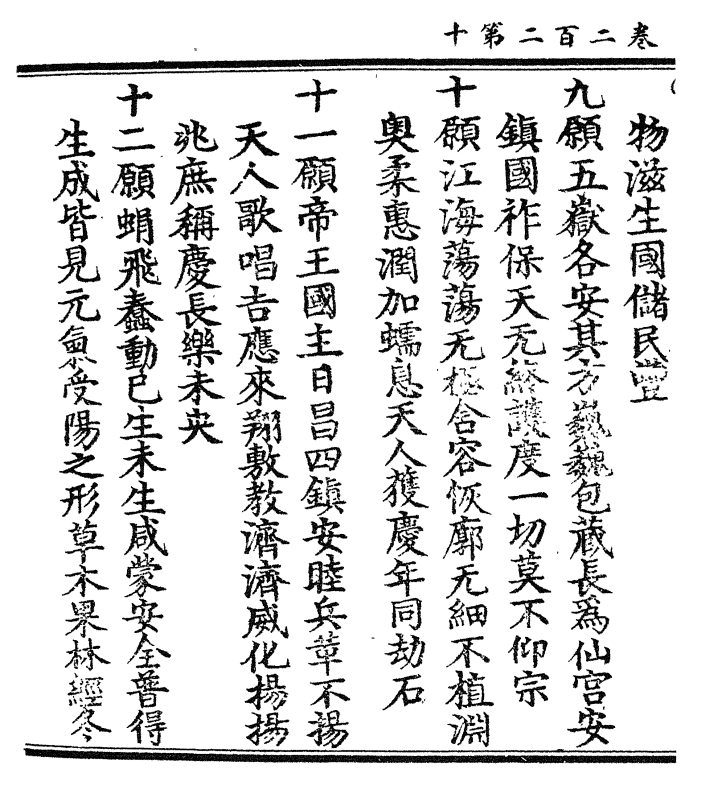 卷二百二第十
物滋生國儲民豐
九願五嶽各安其方巍巍包藏長為仙宮安
鎮國祚保天无終護度一切莫不仰宗
十願江海蕩蕩无極含容恢廓无細不植淵
奧柔惠潤加蠕息天人獲慶年同劫石
十一願帝王國主日昌四鎮安睦兵革不揚
天人歌唱吉應來翔敷教濟濟威化揚揚
兆庶稱慶長樂未央
十二願蜎飛蠢動已生未生咸蒙安全普得
生成皆見元氣受陽之形草木果林經冬